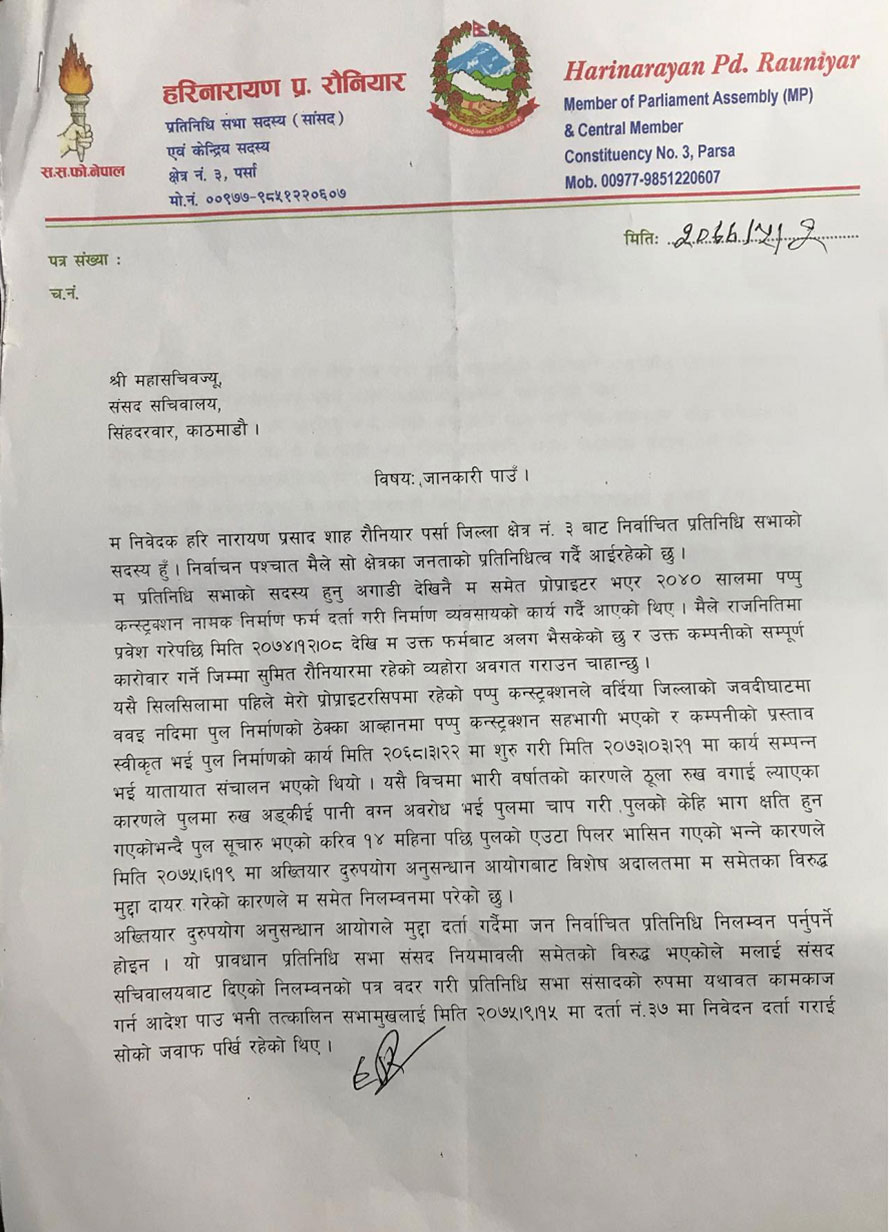 हरिनारायण प्र. रौनियार
प्रतिनिधि सभा सदस्य (सांसद)
एवं केन्द्रिय सदस्य
क्षेत्र नं. ३, पर्सा
मो.नं. ००९७७-९८५१२२०६०७
स.स.फो.नेपाल
Harinarayan Pd. Rauniyar
Member of Parliament Assembly (MP)
& Central Member
Constituency No. 3, Parsa
Mob. 00977-9851220607
मिति:
पत्र संख्या :
च.नं.
श्री महासचिवज्यू,
संसद सचिवालय,
सिंहदरवार, काठमाडौ ।
विषय: जानकारी पाउँ ।
म निवेदक हरि नारायण प्रसाद शाह रौनियार पर्सा जिल्ला क्षेत्र नं. ३ बाट निर्वाचित प्रतिनिधि सभाको
सदस्य हुँ । निर्वाचन पश्चात मैले सो क्षेत्रका जनताको प्रतिनिधित्व गर्दै आईरहेको छु ।
म प्रतिनिधि सभाको सदस्य हुनु अगाडी देखिनै म समेत प्रोप्राइटर भएर २०४० सालमा पप्पु
कन्स्ट्रक्शन नामक निर्माण फर्म दर्ता गरी निर्माण व्यवसायको कार्य गर्दै आएको थिए । मैले राजनितिमा
प्रवेश गरेपछि मिति २०७४।१२।०८ देखि म उक्त फर्मबाट अलग भैसकेको छु र उक्त कम्पनीको सम्पूर्ण
कारोवार गर्ने जिम्मा सुमित रौनियारमा रहेको व्यहोरा अवगत गराउन चाहान्छु ।
यसै सिलसिलामा पहिले मेरो प्रोप्राइटरसिपमा रहेको पप्पु कन्स्ट्रक्शनले वर्दिया जिल्लाको जवदीघाटमा
ववइ नदिमा पुल निर्माणको ठेक्का आब्हानमा पप्पु कन्स्ट्रक्शन सहभागी भएको र कम्पनीको प्रस्ताव
स्वीकृत भई पुल निर्माणको कार्य मिति २०६८।३।२२ मा शुरु गरी मिति २०७३।०३।२१ मा कार्य सम्पन्न
भई यातायात संचालन भएको थियो । यसै विचमा भारी वर्षातको कारणले ठूला रुख वगाई ल्याएका
कारणले पुलमा रुख अड्कीई पानी वग्न अवरोध भई पुलमा चाप गरी पुलको केहि भाग क्षति हुन
गएकोभन्दै पुल सूचारु भएको करिव १४ महिना पछि पुलको एउटा पिलर भासिन गएको भन्ने कारणले
मिति २०७५।६।१९ मा अख्तियार दुरुपयोग अनुसन्धान आयोगबाट विशेष अदालतमा म समेतका विरुद्ध
मुद्दा दायर गरेको कारणले म समेत निलम्वनमा परेको छु ।
अख्तियार दुरुपयोग अनुसन्धान आयोगले मुद्दा दर्ता गर्दैमा जन निर्वाचित प्रतिनिधि निलम्वन पर्नुपर्ने
होइन । यो प्रावधान प्रतिनिधि सभा संसद नियमावली समेतको विरुद्ध भएकोले मलाई संसद
सचिवालयबाट दिएको निलम्वनको पत्र वदर गरी प्रतिनिधि सभा संसादको रुपमा यथावत कामकाज
गर्न आदेश पाउ भनी तत्कालिन सभामुखलाई मिति २०७५।९।१५ मा दर्ता नं.३७ मा निवेदन दर्ता गराई
सोको जवाफ पर्खि रहेको थिए ।